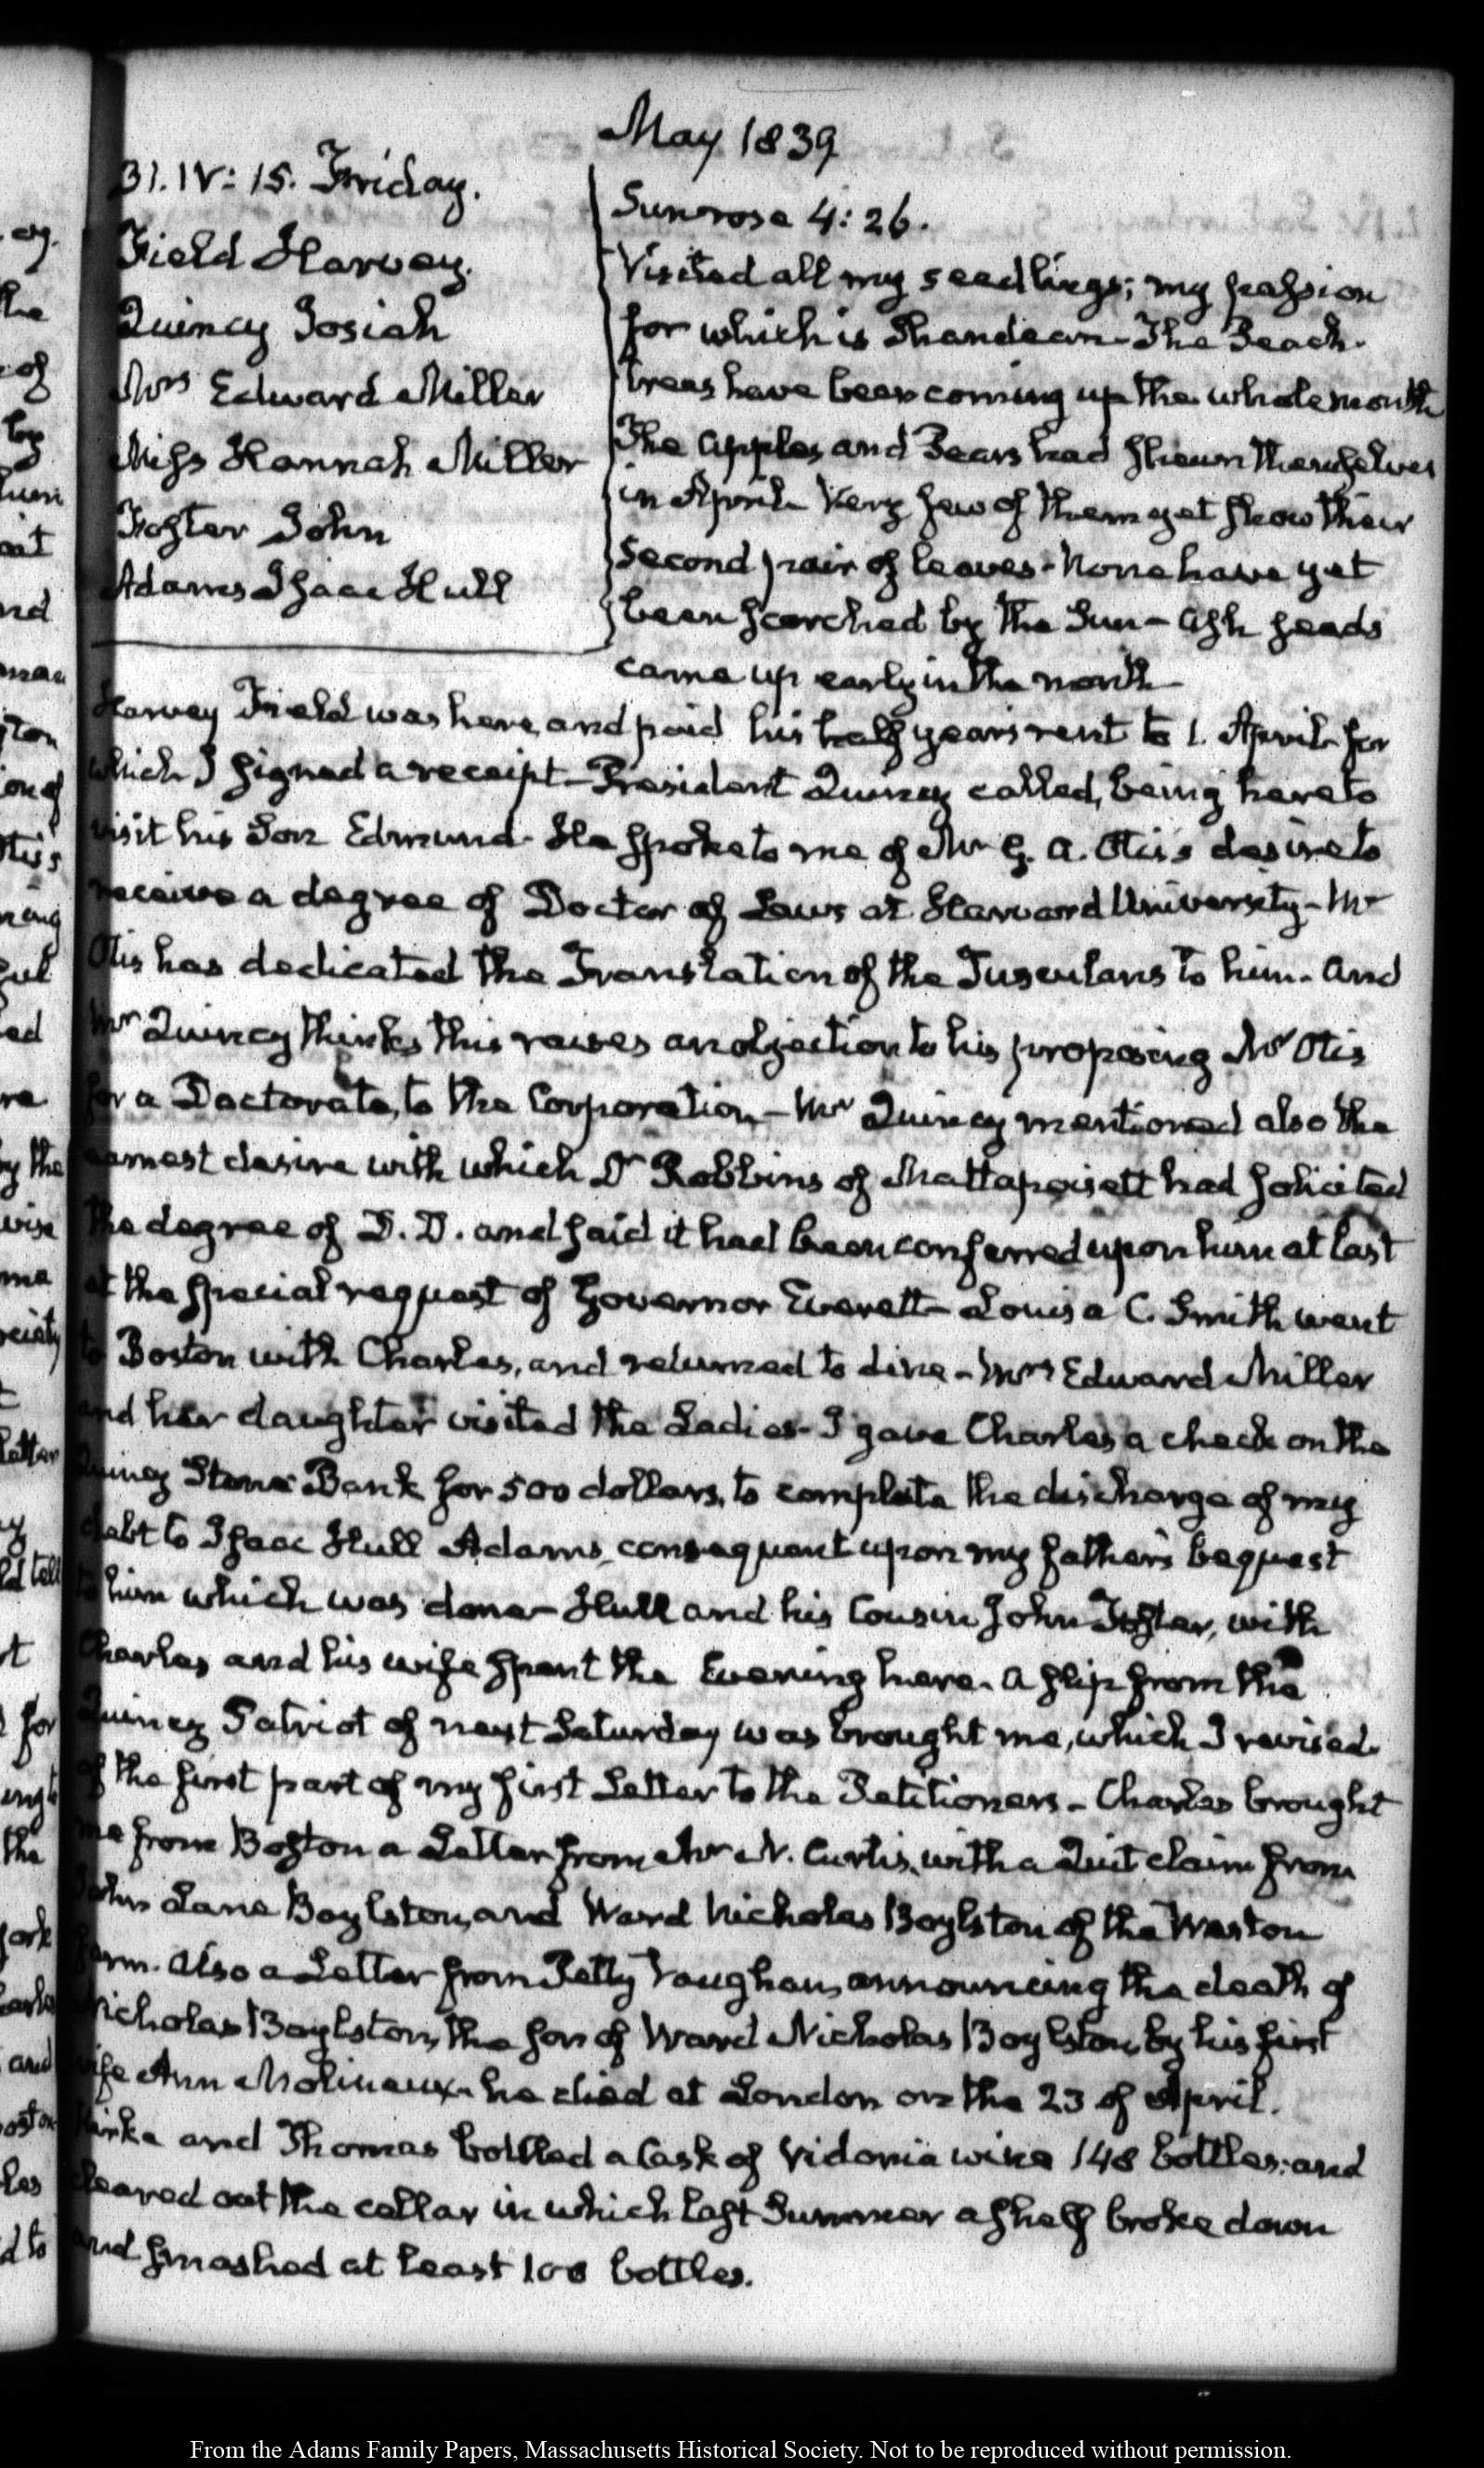 May 1839
31. IV: 15. Friday.
Field Harvey.
Quincy Josiah
Mrs Edward Miller
Miss Hannah Miller
Foster John
Adams Isaac Hull
Sun rose 4: 26.
Visited all my seedlings; my passion
for which is Shandean - The Peach-
trees have been coming up the whole month
The apples and Pears had shewn themselves
in April. Very few of them yet show their
second pair of leaves - None have yet
been scorched by the Sun - Ash seeds
came up early in the month
Harvey Field was here, and paid his half years rent to 1. April for
which I signed a receipt - President Quincy called, being here to
visit his Son Edmund. He spoke to me of Mr G. A. Otis's desire to
receive a degree of Doctor of Laws at Harvard University - Mr
Otis has dedicated the Translation of the Tusculans to him. And
Mr Quincy thinks this raises an objection to his proposing Mr Otis
for a Doctorate, to the Corporation - Mr Quincy mentioned also the
earnest desire with which Dr Robbins of Mattapoisett had solicited
the degree of D. D. and said it had been conferred upon him at last
at the special request of Governor Everett - Louisa C. Smith went
to Boston with Charles, and returned to dine - Mrs Edward Miller
and her daughter visited the Ladies - I gave Charles a check on the
Quincy Stone Bank for 500 dollars, to complete the discharge of my
debt to Isaac Hull Adams, consequent upon my father's bequest
to him which was done - Hull and his Cousin John Foster, with
Charles and his wife spent the Evening here. A slip from the
Quincy Patriot of next Saturday was brought me, which I revised
of the first part of my first Letter to the Petitioners - Charles brought
me from Boston a Letter from Mr N. Curtis, with a Quit claim from
John Lane Boylston, and Ward Nicholas Boylston of the Weston
farm. Also a Letter from Petty Vaughan, announcing the death of
Nicholas Boylston, the son of Ward Nicholas Boylston, by his first
wife Ann Molineaux - he died at London on the 23 of April.
Kirke and Thomas bottled a Cask of Vidonia wine 148 bottles; and
cleared out the cellar in which last Summer a shelf broke down
and smashed at least 100 bottles.
From the Adams Family Papers, Massachusetts Historical Society. Not to be reproduced without permission.